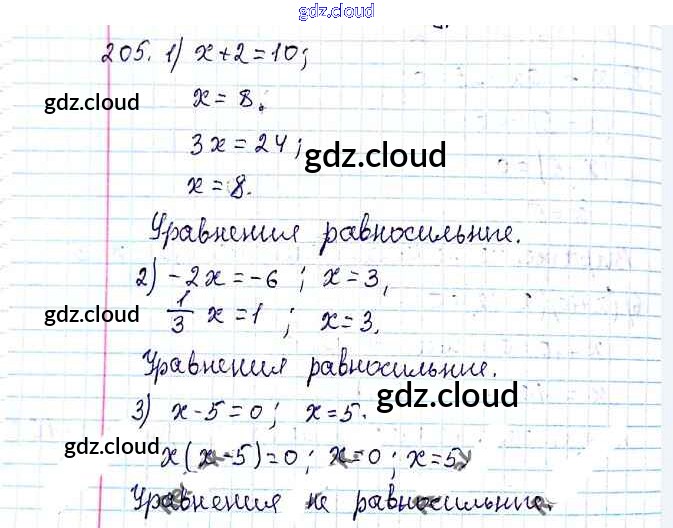 gdz.cloud
205. 1) x+2=10;
gdz.cloud
x=8.
3x=24;
gdz.cloud
x=8.
Уравнения равносильные.
2) -2x=-6; x=3,
gdz.cloud
1/3 x=1; x=3.
Уравнения равносильные.
gdz.cloud
3) x-5=0; x=5.
gdz.cloud
x(x-5)=0; x=0; x=5,
Уравнения не равносильные.